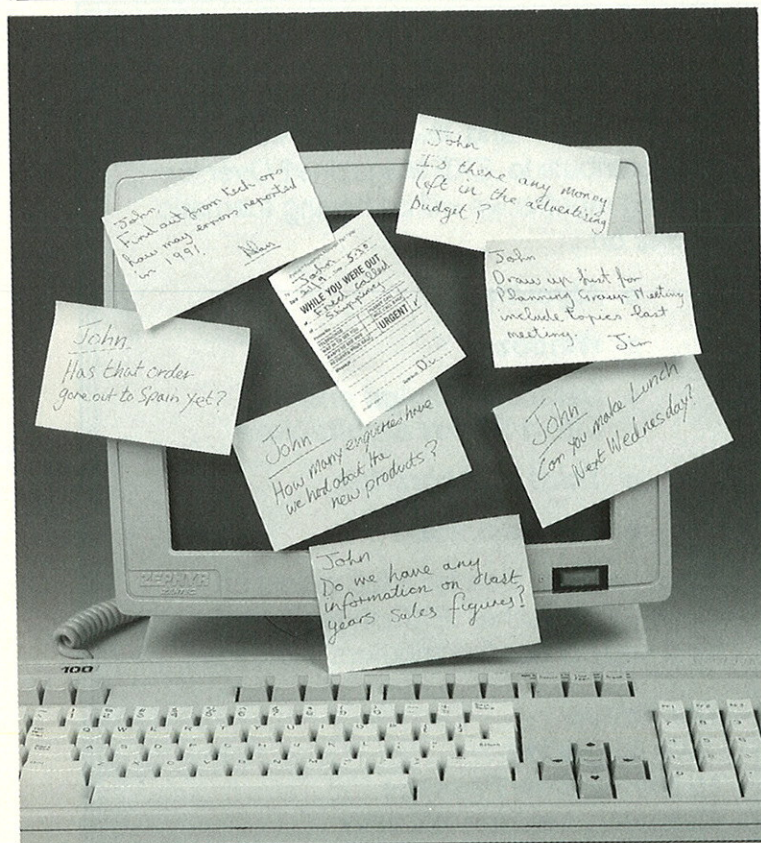 John,
Find out from tech ops
how may errors reported
in 1991
Alan
John
Is there any money
left in the advertising
Budget?
John 5.30
WHILE YOU WERE OUT
Fred called
Shipping
URGENT
John
Draw up list for
Planning Group Meeting
include topics last
meeting.
Jim
John
Has that order
gone out to Spain yet?
John
How many enquiries have
we had about the
new products?
John
Can you make Lunch
Next Wednesday?
John
Do we have any
information on last
years sales figures?
ZEPHYR
100